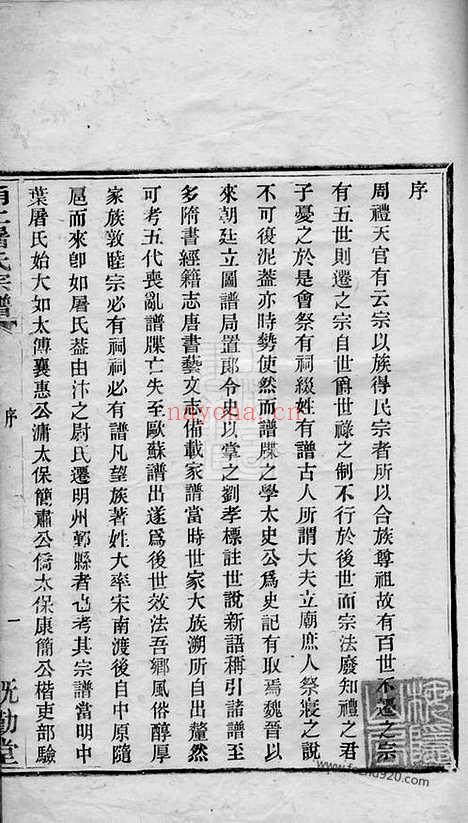 序
周禮天官有云宗以族得民宗者所以合族尊祖故有百世不遷之宗
有五世則遷之宗自世爵世祿之制不行於後世而宗法廢知禮之君
子憂之於是會祭有祠綴姓有譜古人所謂大夫立廟庶人祭寢之說
不可復泥蓋亦時勢使然而譜牒之學太史公爲史記有取焉魏晉以
來朝廷立圖譜局置郎令史以掌之劉孝標註世說新語稱引諸譜至
多隋書經籍志唐書藝文志備載家譜當時世家大族溯所自出釐然
可考五代喪亂譜牒亡失至歐蘇譜出遂爲後世效法吾鄉風俗醇厚
家族敦睦宗必有祠祠必有譜凡望族著姓大率宋南渡後自中原隨
扈而來卽如屠氏蓋由汴之尉氏遷明州鄞縣者也考其宗譜當明中
葉屠氏始大如太傅襄惠公滽太保簡肅公僑太保康簡公楷吏部驗
甬上屠氏宗譜
序
一
旣勤堂
nayona.cn
www.fozhu920.com